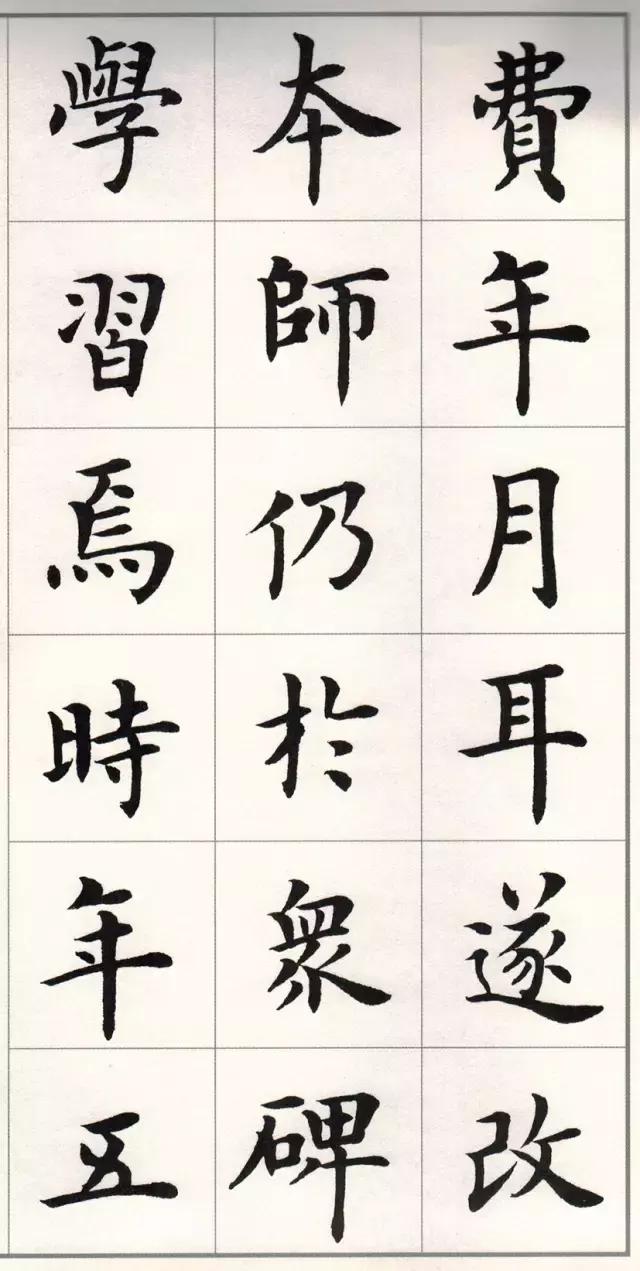 費年月耳遂改
本師仍於衆碑
學習焉時年五